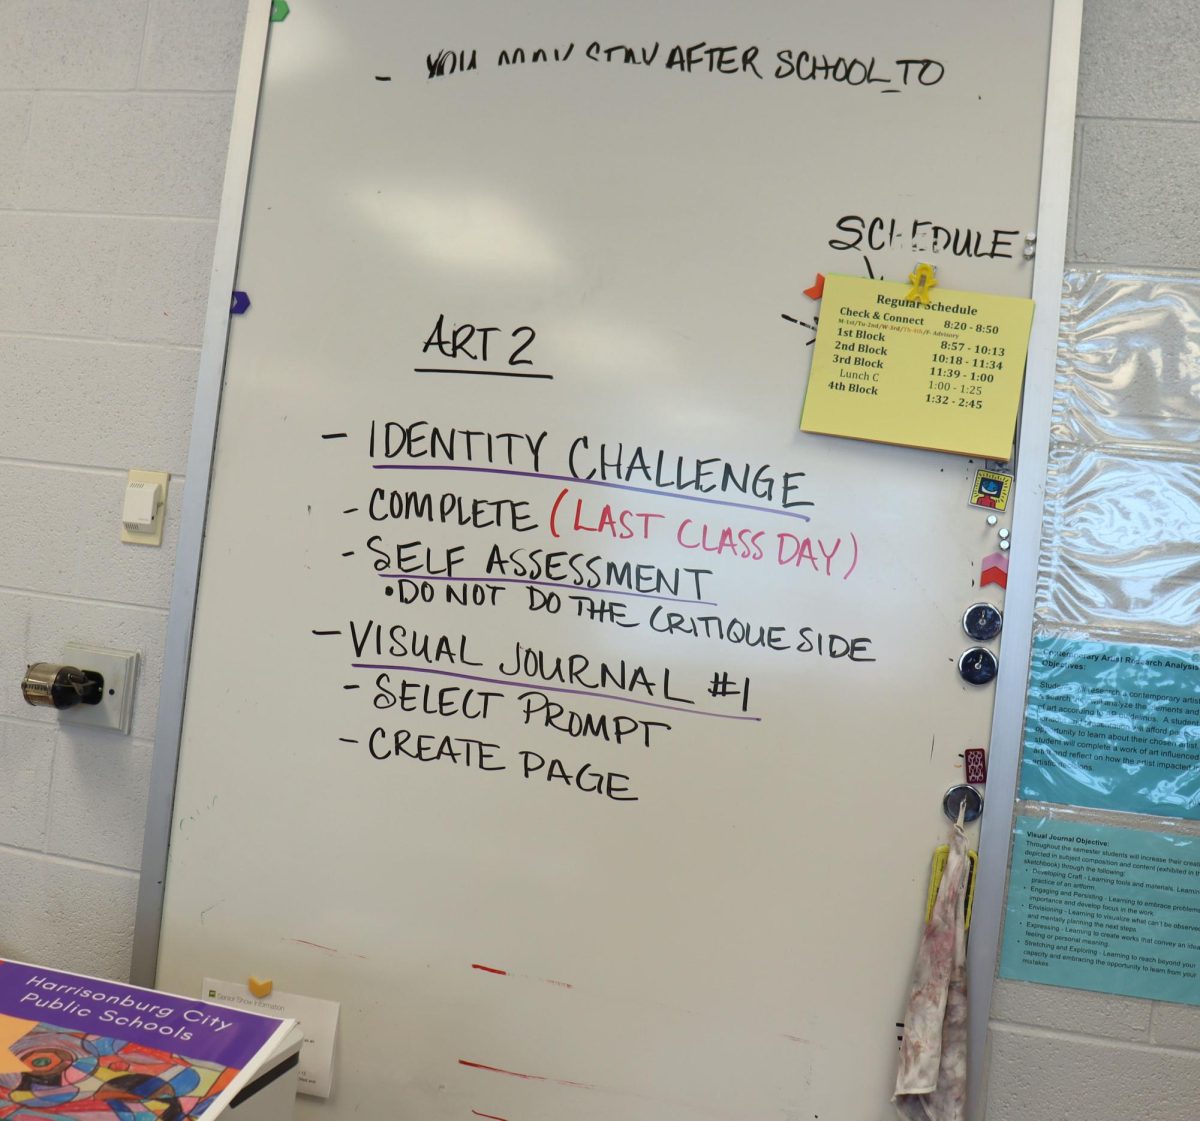 - YOU MAY STAY AFTER SCHOOL TO
SCHEDULE
Regular Schedule
Check & Connect 8:20 - 8:50
M-1st/Tu-2nd/W-3rd/Th-4th/F- Advisory
1st Block 8:57 - 10:13
2nd Block 10:18 - 11:34
3rd Block 11:39 - 1:00
Lunch C 1:00 - 1:25
4th Block 1:32 - 2:45
ART 2
- IDENTITY CHALLENGE
- COMPLETE (LAST CLASS DAY)
- SELF ASSESSMENT
• DO NOT DO THE CRITIQUE SIDE
- VISUAL JOURNAL #1
- SELECT PROMPT
- CREATE PAGE
Contemporary Artist Research Analysis
Objectives:
research a contemporary artist
analyze the elements and
of art according to
A student
afford
opportunity to learn about their chosen artist
student will complete a work of art influenced
and reflect on how the artist impacted
Visual Journal Objective:
Throughout the semester students will increase their
depicted in subject composition and content (exhibited in
sketchbook) through the following:
• Developing Craft - Learning tools and materials, Learning
practice of an artform.
• Engaging and Persisting - Learning to embrace problems
importance and develop focus in the work.
• Envisioning - Learning to visualize what can't be observed
and mentally planning the next steps.
• Expressing - Learning to create works that convey an idea
feeling or personal meaning.
• Stretching and Exploring - Learning to reach beyond your
capacity and embracing the opportunity to learn from your
mistakes.
Senior Show Information
Harrisonburg City
Public Schools